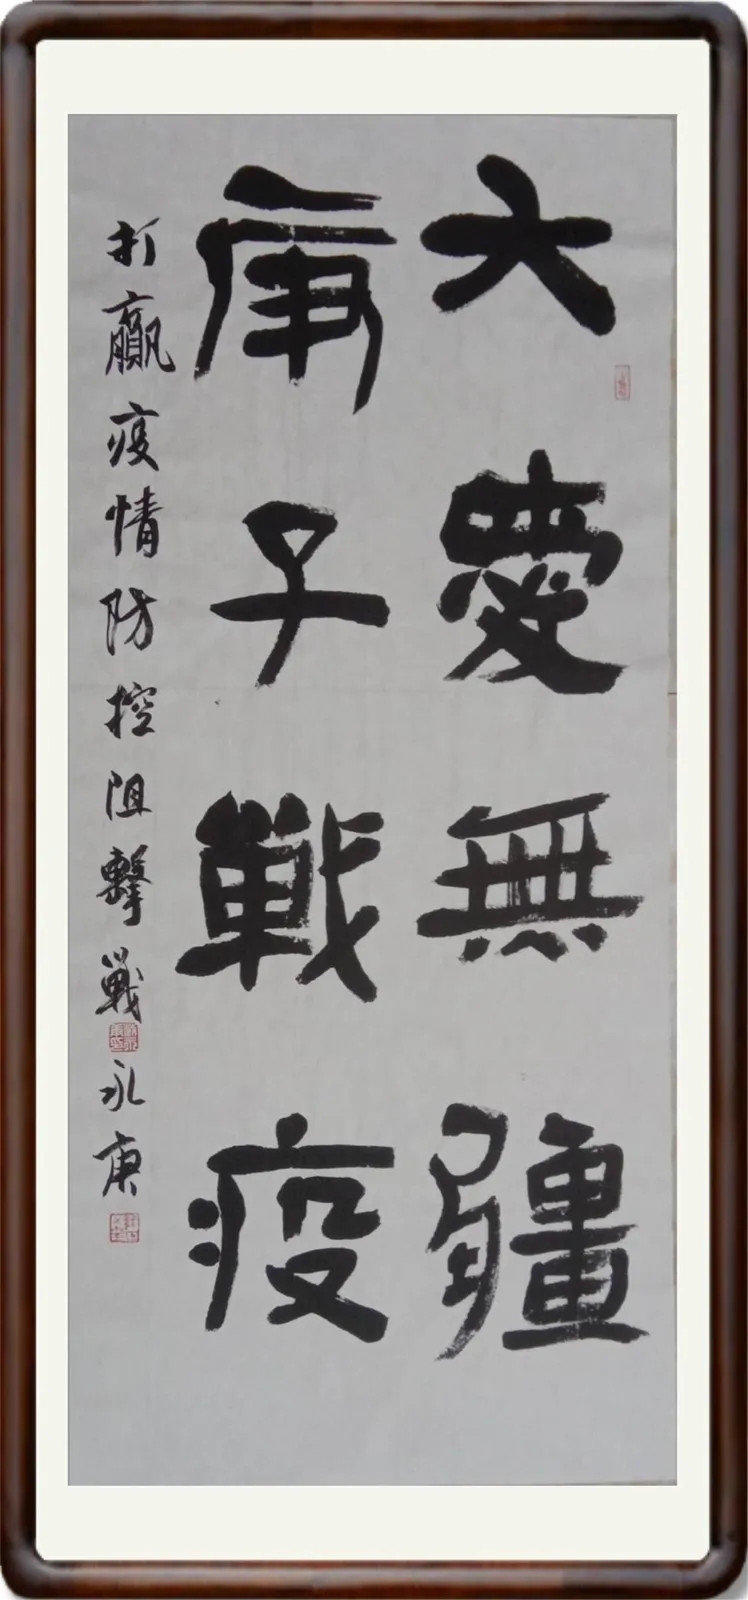 大愛無疆
庚子戰疫
打贏疫情防控阻擊戰 永庚